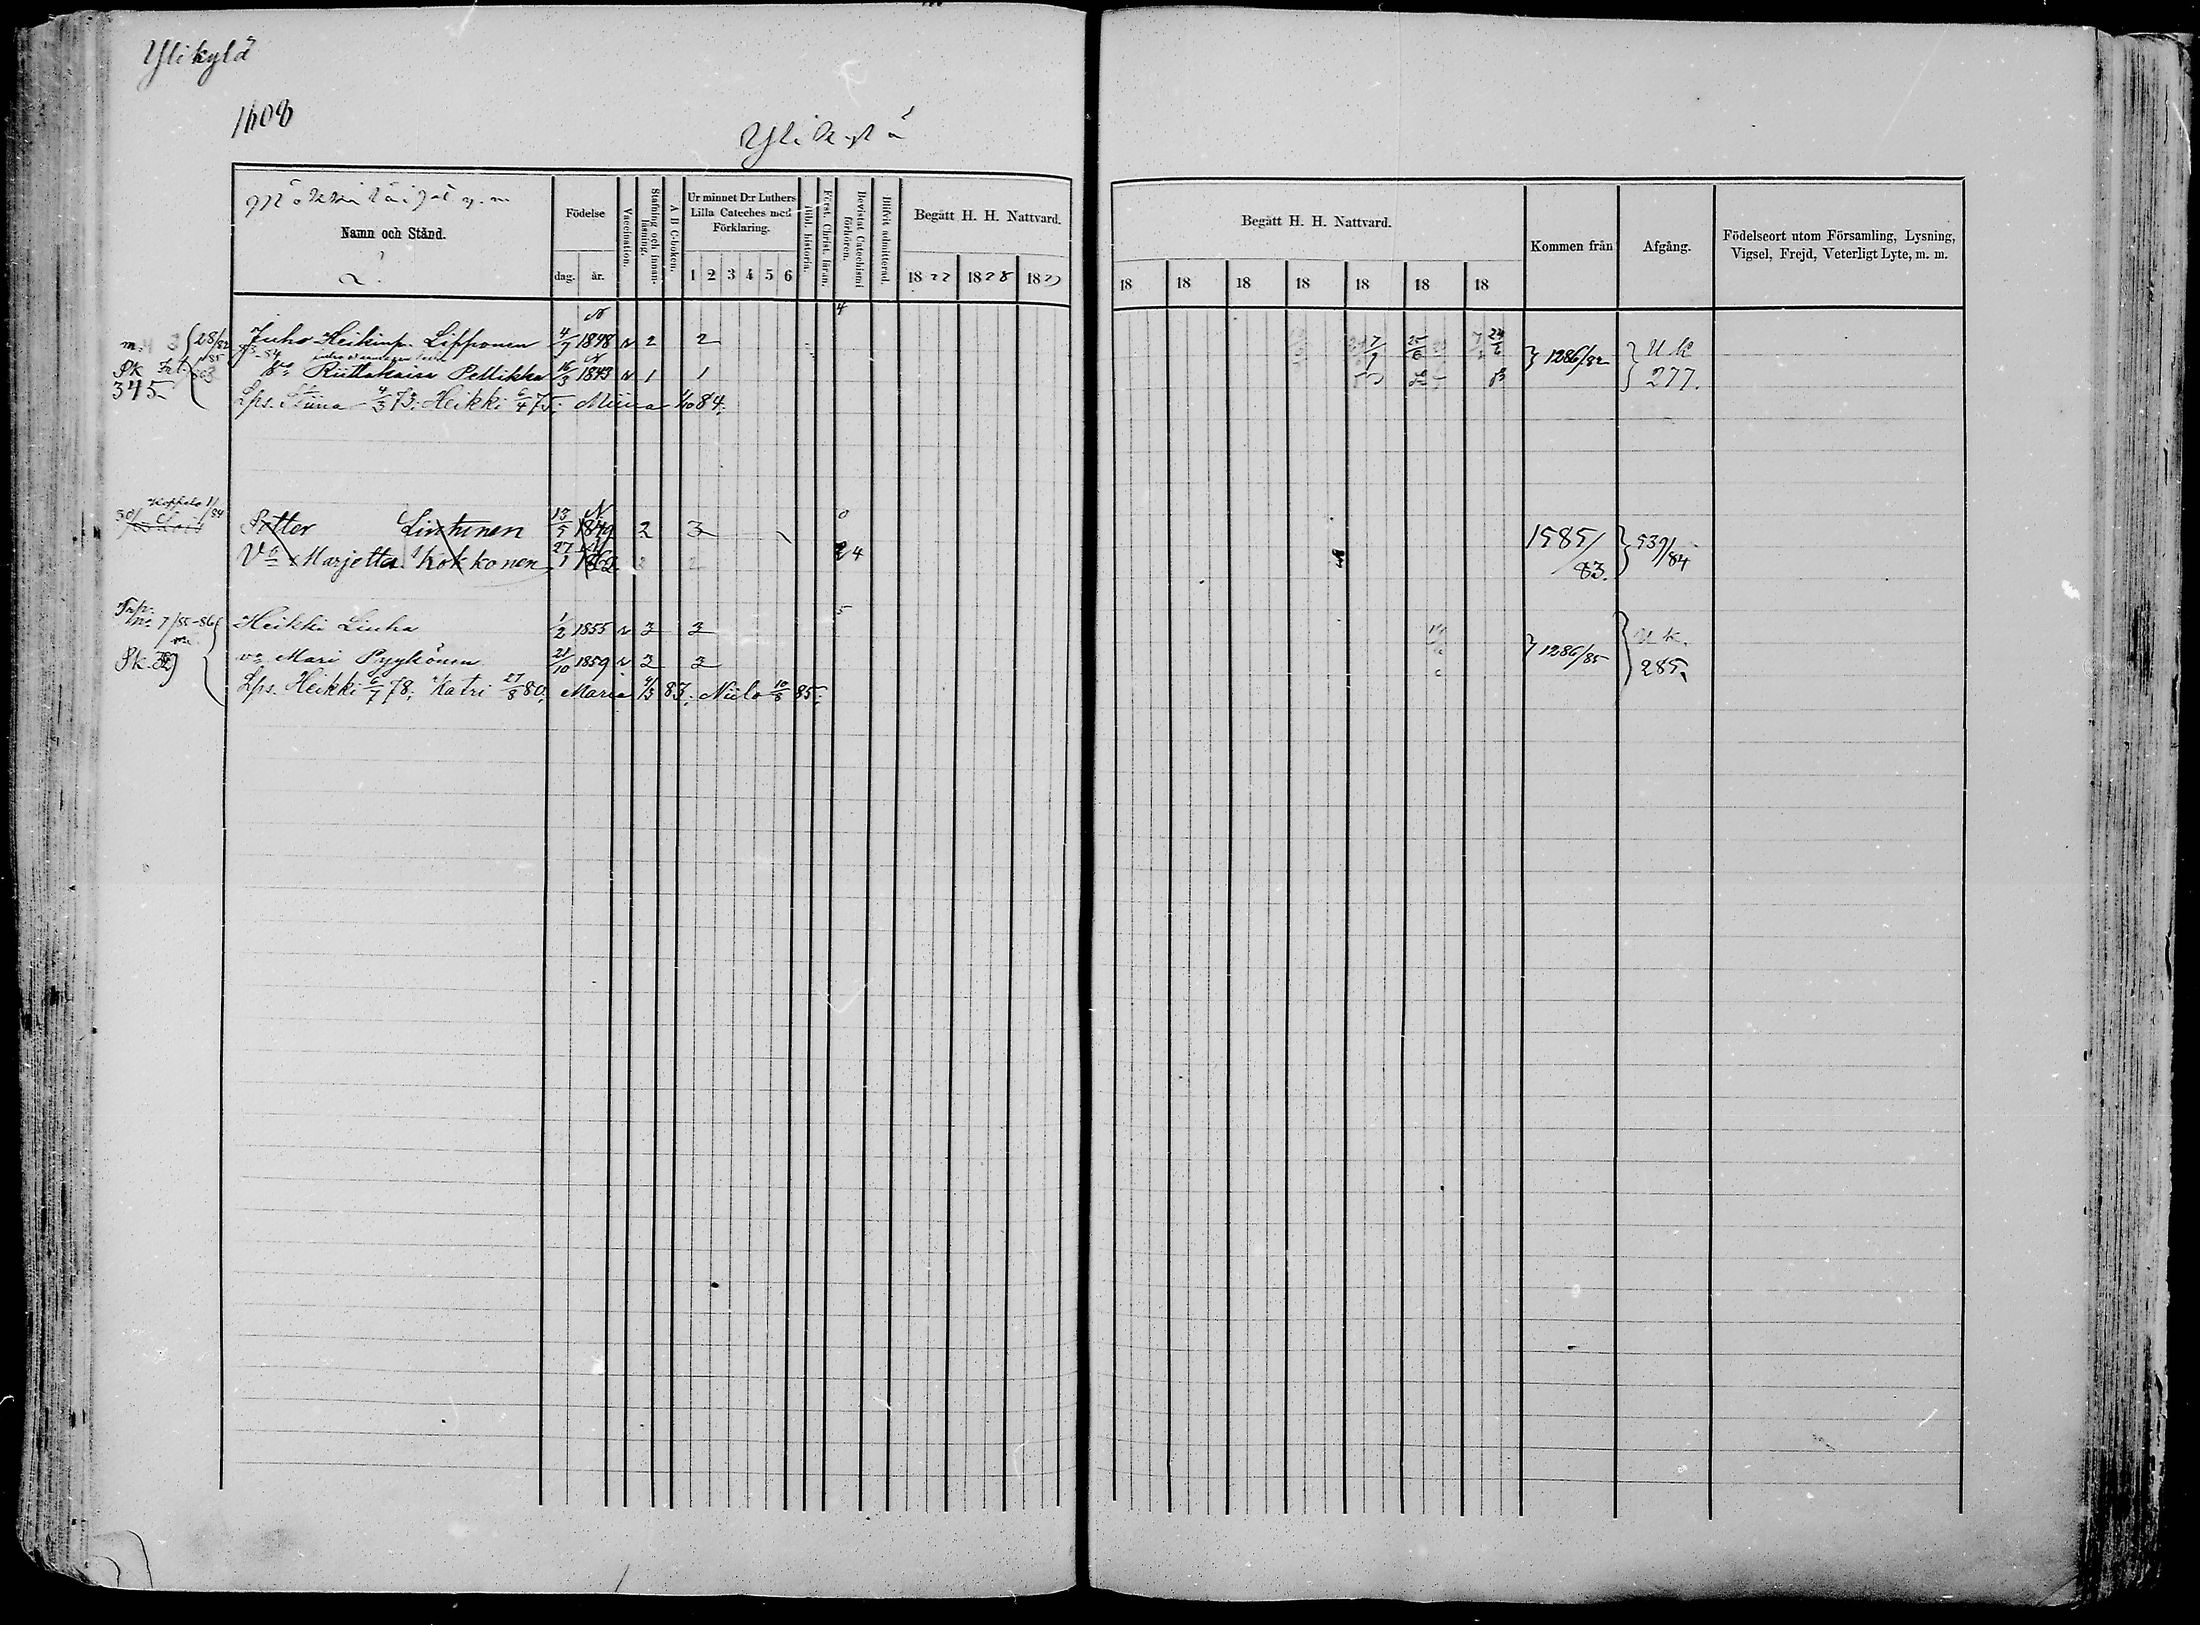 Ylikylä
1608
Ylikylä
Namn och Stånd.
Födelse
dag. år.
Vaccination.
Stafning och innanläsning.
A B C-boken.
Ur minnet D:r Luthers Lilla Cateches med Förklaring.
1 2 3 4 5 6
Bibl. historia.
Först. Christ. läran.
Bevistat Catechismi förhören.
Blifvit admitterad.
Begått H. H. Nattvard.
18 18 28 18
Begått H. H. Nattvard.
18 18 18 18 18 18 18
Kommen från
Afgång.
Födelseort utom Församling, Lysning, Vigsel, Frejd, Veterligt Lyte, m. m.
Juho Heikinp. Lipponen 4/7 1848 v 2 2 4 1286/82 U. K.
Vo Riittakaisa Pellikka 16/3 1843 v 1 1 277.
345
Lps. Stiina 4/3 73; Heikki 6/4 75; Miina 4/10 84.
Petter Lintunen 13/5 1849 2 3 0 1585/83. 539/84
Vo Marjetta Kokkonen 27/1 1862 4
Heikki Liuha 1/2 1855 v 3 3 5 1286/85 U. K.
vo Mari Pyykönen 21/10 1859 v 2 2 285.
Lps. Heikki 6/7 78; Katri 27/8 80; Maria 4/3 83; Niilo 10/8 85;